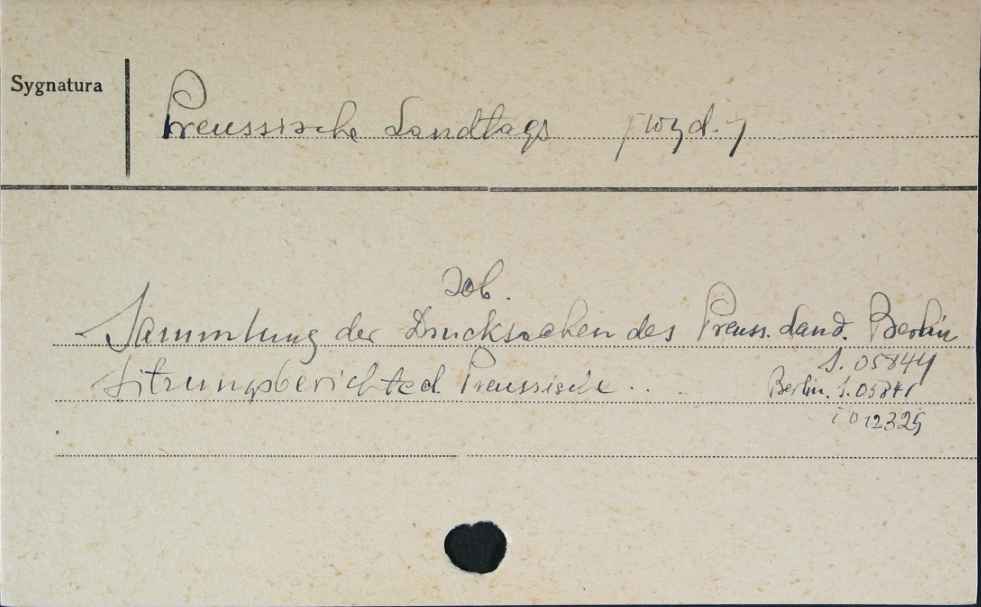 Sygnatura
Preussische Landtags /wyd./
Zob.
Sammlung der Drucksachen des Preuss. Land. Berlin
S. 05844
Sitzungsberichte d. Preussische ..
Berlin. S. 05841
i 012325